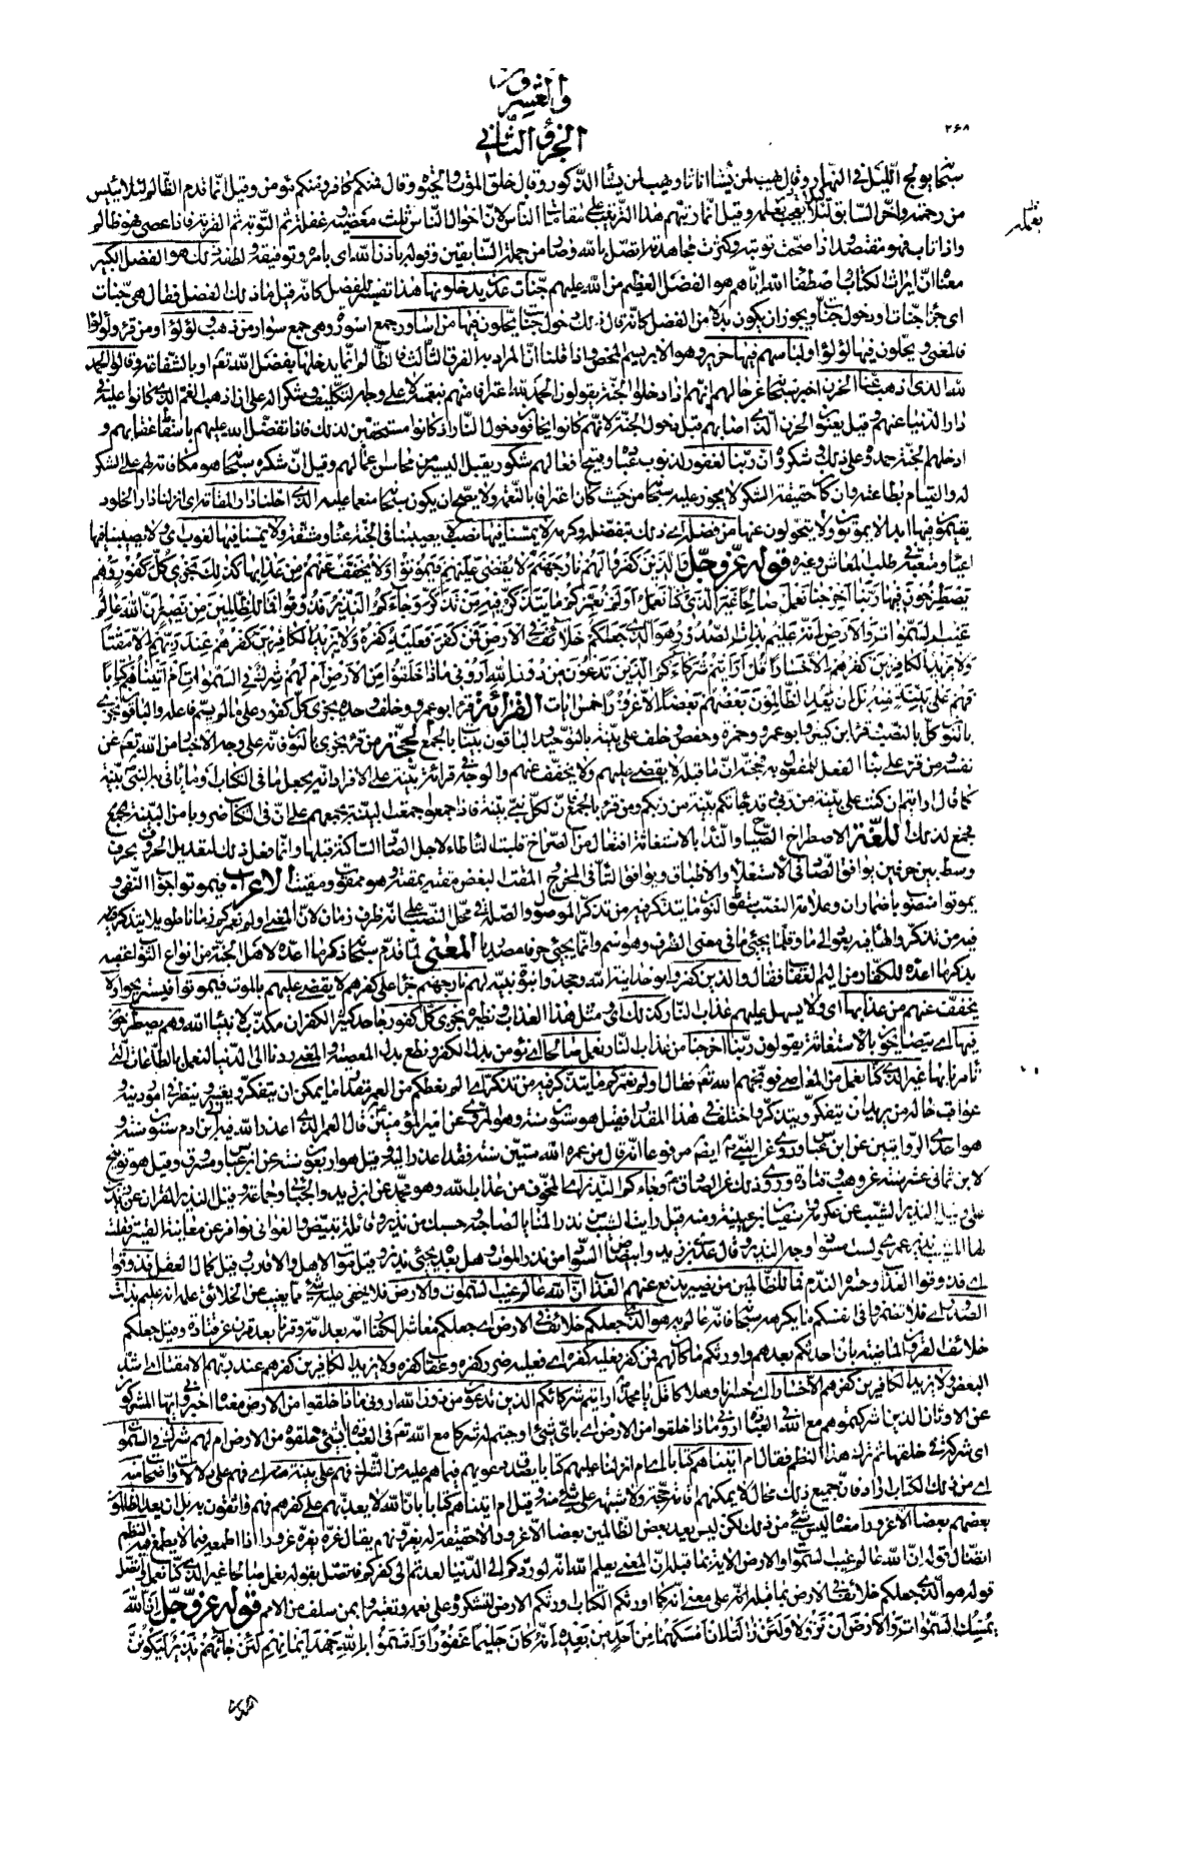 والعشرون
الجزؤ الثاني
٢٦٨
سبحانه يولج الليل في النهار وقال يهب لمن يشاء اناثا ويهب لمن يشاء الذكور وقال خلق الموت والحيوة وقال فمنكم كافر ومنكم مؤمن وقيل انما قدم الظالم لئلا ييئس
من رحمته واخر السابق لئلا يعجب بعلمه وقيل انما رتبهم هذا الترتيب على مقامات الناس لان احوال الناس ثلث معصية وغفلة ثم التوبة ثم القربة فاذا عصى فهو ظالم
بعمله
واذا تاب فهو مقتصد اذا صحت توبته وكثرت مجاهدته اتصل بالله وصار من جملة السابقين وقوله باذن الله اى بامره وتوفيقه ولطفه ذلك هو الفضل الكبير
معناه ان ايراث الكتاب واصطفاء الله اياهم هو الفضل العظيم من الله عليهم جنات عدن يدخلونها هذا تفسير للفضل كانه قيل ما ذلك الفضل فقال هى جنات
اى جزاء جنات او دخول جنات ويجوز ان يكون بدلا من الفضل كانه قال ذلك دخول جنات يحلون فيها من اساور جمع اسورة وهى جمع سوار من ذهب ولؤلؤا ومن قرء ولؤلؤا
فالمعنى ويحلون فيها لؤلؤا ولباسهم فيها حرير وهو الابريسم المحض واذا قلنا ان المراد به الفرق الثالث فالظالم انما يدخلها بفضل الله تعم او بالشفاعة وقالوا الحمد
لله الذى اذهب عنا الحزن اخبر سبحانه عن حالهم انهم اذا دخلوا الجنة يقولون الحمد لله اعترافا منهم بنعمته لا على وجه التكليف وشكرا له على ان اذهب الغم الذى كانوا عليه فى
دار الدنيا عنهم وقيل يعنون الحزن الذى اصابهم قبل دخول الجنة لانهم كانوا يخافون دخول النار اذ كانوا مستحقين لذلك فاذا تفضل الله عليهم باسقاط عقابهم و
ادخلهم الجنة حمدوه على ذلك وشكروه ان ربنا لغفور لذنوب عباده وقبيح افعالهم شكور يقبل اليسير من محاسن اعمالهم وقيل ان شكره سبحانه هو مكافاته لهم على الشكر
له والقيام بطاعته وان كان حقيقة الشكر لا يجوز عليه سبحانه من حيث كان اعترافا بالنعمة ولا يصح ان يكون سبحانه منعما عليه الذى احلنا دار المقامة اى انزلنا دار الخلود
يقيمون فيها ابدا لا يموتون ولا يتحولون عنها من فضله اى ذلك بتفضله وكرمه لا يمسنا فيها نصب لا يصيبنا فى الجنة عناء ومشقة ولا يمسنا فيها لغوب اى ولا يصيبنا فيها
اعياء ومتعبة فى طلب المعاش وغيره قوله عز وجل والذين كفروا لهم نار جهنم لا يقضى عليهم فيموتوا ولا يخفف عنهم من عذابها كذلك نجزى كل كفور وهم
يصطرخون فيها ربنا اخرجنا نعمل صالحا غير الذى كنا نعمل اولم نعمركم ما يتذكر فيه من تذكر وجاءكم النذير فذوقوا فما للظالمين من نصير ان الله عالم
غيب السموات والارض انه عليم بذات الصدور هو الذى جعلكم خلائف فى الارض فمن كفر فعليه كفره ولا يزيد الكافرين كفرهم عند ربهم الا مقتا
ولا يزيد الكافرين كفرهم الا خسارا قل ارايتم شركاءكم الذين تدعون من دون الله ارونى ماذا خلقوا من الارض ام لهم شرك فى السموات ام اتيناهم كتابا
فهم على بينة منه بل ان يعد الظالمون بعضهم بعضا الا غرورا خمس ايات القرائة قرء ابو عمرو وحده يجزى كل كفور على ما لم يسم فاعله والباقون نجزى
بالنون كل بالنصب وقرا ابن كثير وابو عمرو وحمزة وحفص وخلف على بينة بالتوحيد والباقون بينات بالجمع الحجة من قرء نجزى بالنون فانه على وجه الاخبار من الله تعم عن
نفسه ومن قرء على بناء الفعل للمفعول به فحجته ان ما قبله لا يقضى عليهم ولا يخفف عنهم والوجه فى قرائة بينة على الافراد انه يجعل ما فى الكتاب او ما ياتى به النبى بينة
كما قال ارايتم ان كنت على بينة من ربى قد جائتكم بينة من ربكم ومن قرء بالجمع فان لكل نبى بينة فاذا جمعوا جمعت البينة بجمعهم على ان فى الكتاب ضروبا من البينة فجمع
لذلك اللغة الاصطراخ الصياح والنداء بالاستغاثة افتعال من الصراخ قلبت التاء طاء لاجل الصاد الساكنة قبلها وانما فعل ذلك لتعديل الحروف بحرف
وسط بين حرفين يوافق الصاد فى الاستعلاء والاطباق ويوافق التاء فى المخرج المقت البغض مقته يمقته وهو ممقوت ومقيت الاعراب فيموتوا جواب النفى و
يموتوا منصوب باضمار ان وعلامة النصب سقوط النون ما يتذكر فيه من تذكر الموصول والصلة فى محل النصب على انه ظرف زمان لان المعنى اولم نعمركم زمانا طويلا يتذكر فيه
المعنى لما قدم سبحانه ذكر ما اعده لاهل الجنة من انواع الثواب عقبه
بذكر ما اعده للكفار من اليم العقاب فقال والذين كفروا بوحدانية الله وجحدوا نبوة نبيه لهم نار جهنم جزاء على كفرهم لا يقضى عليهم بالموت فيموتوا فيستريحوا ولا
يخفف عنهم من عذابها اى ولا يسهل عليهم عذاب النار كذلك اى ومثل هذا العذاب ونظيره نجزى كل كفور جاحد كثير الكفران مكذب لانبياء الله وهم يصطرخون
فيها اى يتصايحون بالاستغاثة يقولون ربنا اخرجنا من عذاب النار نعمل صالحا اى نؤمن بدل الكفر ونطع بدل المعصية والمعنى ردنا الى الدنيا لنعمل بالطاعات التى
تامرنا بها غير الذى كنا نعمل من المعاصى فوبخهم الله تعم فقال اولم نعمركم ما يتذكر فيه من تذكر اى الم نعطكم من العمر مقدار ما يمكن ان يتفكر ويعتبر وينظر فى امور دينه و
عواقب حاله من يريد ان يتفكر ويتذكر واختلف فى هذا المقدار فقيل هو ستون سنة وهو المروى عن امير المؤمنين قال العمر الذى اعذر الله فيه الى ابن ادم ستون سنة و
هو احدى الروايتين عن ابن عباس وروى عن النبى ايضا مرفوعا انه قال من عمره الله ستين سنة فقد اعذر اليه وقيل هو اربعون سنة عن ابن عباس ومسروق وقيل هو توبيخ
لابن ثمانى عشرة سنة عن وهب وقتادة وروى ذلك عن الصادق وجاءكم النذير اى المخوف من عذاب الله وهو محمد عن ابن زيد والجبائى وجماعة وقيل النذير القران عن زيد
بن على وقيل النذير الشيب عن عكرمة وسفيان بن عيينة ومنه قيل رايت الشيب من نذر المنايا لصاحبه وحسبك من نذير
اى فذوقوا العذاب وحسرة الندم فما للظالمين من نصير يدفع عنهم العذاب ان الله عالم غيب السموات والارض فلا يخفى عليه شىء مما يغيب عن الخلائق علمه انه عليم بذات
الصدور اى فلا تضمروا فى انفسكم ما يكرهه سبحانه فانه عالم به هو الذى جعلكم خلائف فى الارض اى جعلكم معاشر الكفار امة بعد امة وقرنا بعد قرن عن قتادة وقيل جعلكم
خلائف القرون الماضية بان احدثكم بعدهم واورثكم ما كان لهم فمن كفر فعليه كفره اى فعليه ضرر كفره وعقاب كفره ولا يزيد الكافرين كفرهم عند ربهم الا مقتا اى اشد
البغض ولا يزيد الكافرين كفرهم الا خسارا اى خسرانا وهلاكا قل يا محمد ارايتم شركائكم الذين تدعون من دون الله ارونى ماذا خلقوا من الارض معناه اخبرونى ايها المشركون
عن الاوثان الذين اشركتموهم مع الله فى العبادة ارونى ماذا خلقوا من الارض اى باى شىء اوجبتم لهم شركا مع الله تعم فى العبادة ابشىء خلقوه من الارض ام لهم شرك فى السموات
اى شركة فى خلقها ثم ترك هذا النظم فقال ام اتيناهم كتابا اى ام انزلنا عليهم كتابا يصدق دعويهم فيما هم عليه من الشرك فهم على بينة منه اى فهم على دلالات واضحات منه
اى من ذلك الكتاب اراد فان جميع ذلك محال لا يمكنهم اقامة حجة ولا شبهة على شىء منه وقيل ام اتيناهم كتابا بان الله لا يعذبهم على كفرهم فهم واثقون به بل ان يعد الظالمون
بعضهم بعضا الا غرورا معناه ليس شىء من ذلك لكن ليس يعد بعض الظالمين بعضا الا غرورا لا حقيقة له يغرونهم يقال غره يغره غرورا اذا اطمعه فيما لا يطمع فيه النظم
اتصال قوله ان الله عالم غيب السموات والارض الاية بما قبله ان المعنى يعلم الله انه لو ردكم الى الدنيا لعدتم الى كفركم فاتصل بقوله نعمل صالحا غير الذى كنا نعمل واتصل
قوله هو الذى جعلكم خلائف فى الارض بما قبله انه على معنى انه كما اورثكم الكتاب اورثكم الارض لتشكروه على نعمه وتعتبروا بمن سلف من الامم قوله عز وجل ان الله
يمسك السموات والارض ان تزولا ولئن زالتا ان امسكهما من احد من بعده انه كان حليما غفورا واقسموا بالله جهد ايمانهم لئن جائهم نذير ليكونن